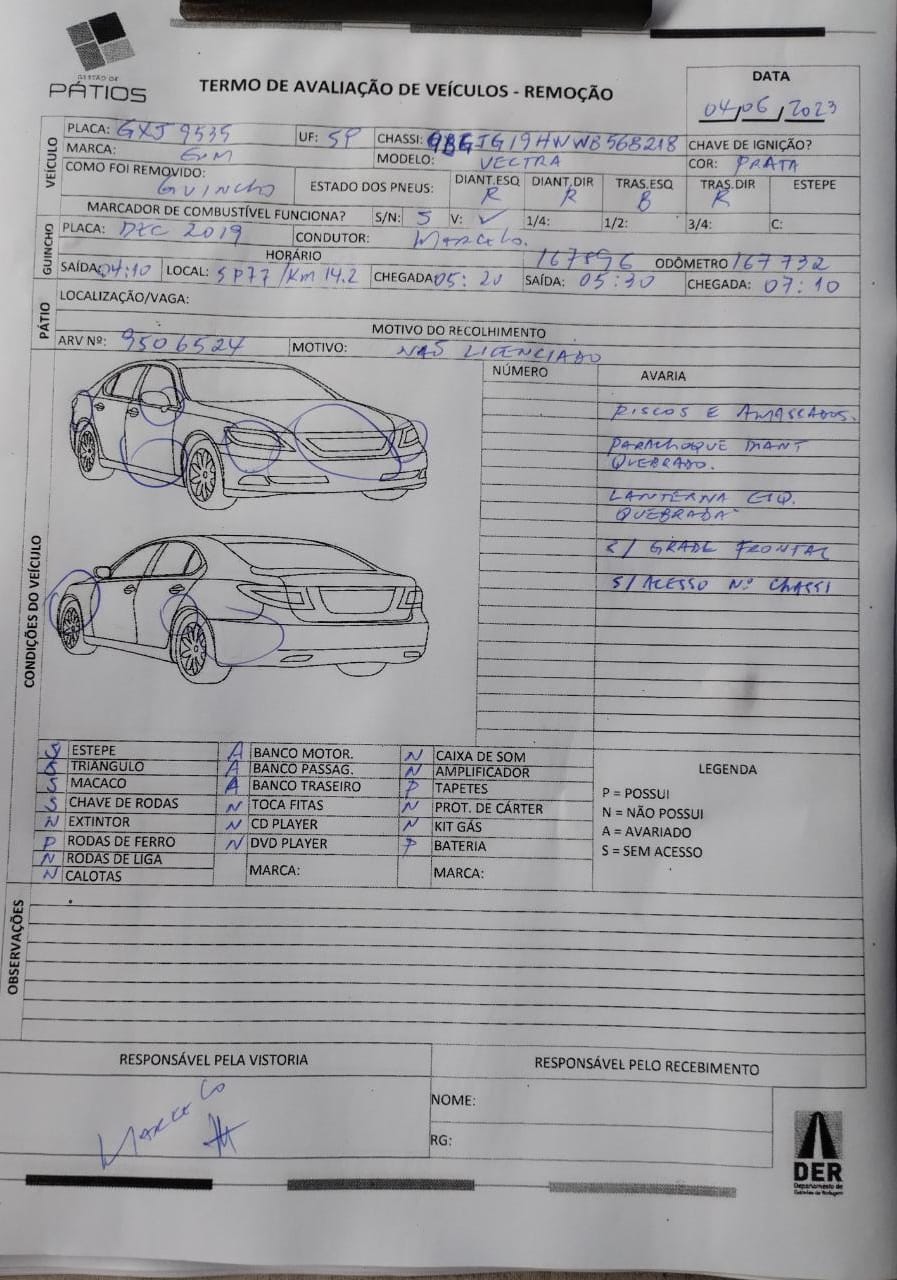 GESTÃO DE
PÁTIOS
TERMO DE AVALIAÇÃO DE VEÍCULOS - REMOÇÃO
DATA
04/06/2023
VEÍCULO
PLACA: GXJ 9535 UF: SP CHASSI: 9BGJG19HWWB568218 CHAVE DE IGNIÇÃO?
MARCA: G.M MODELO: VECTRA COR: PRATA
COMO FOI REMOVIDO: GUINCHO ESTADO DOS PNEUS: DIANT.ESQ R DIANT.DIR R TRAS.ESQ B TRAS.DIR R ESTEPE
MARCADOR DE COMBUSTÍVEL FUNCIONA? S/N: S V: ✓ 1/4: 1/2: 3/4: C:
GUINCHO
PLACA: DEC 2019 CONDUTOR: MARCELO.
HORÁRIO 167896 ODÔMETRO 167732
SAÍDA: 04:10 LOCAL: SP77/KM 14.2 CHEGADA 05:20 SAÍDA: 05:30 CHEGADA: 07:10
PÁTIO
LOCALIZAÇÃO/VAGA:
MOTIVO DO RECOLHIMENTO
ARV Nº: 9506524 MOTIVO: NAS LICENCIADO
CONDIÇÕES DO VEÍCULO
NÚMERO AVARIA
RISCOS E AMASSADOS.
PARACHOQUE DIANT
QUEBRADO.
LANTERNA ESQ.
QUEBRADA
S/ GRADE FRONTAL
S/ ACESSO Nº CHASSI
S ESTEPE A BANCO MOTOR. N CAIXA DE SOM
S TRIANGULO A BANCO PASSAG. N AMPLIFICADOR
S MACACO A BANCO TRASEIRO P TAPETES
S CHAVE DE RODAS N TOCA FITAS N PROT. DE CÁRTER
N EXTINTOR N CD PLAYER N KIT GÁS
P RODAS DE FERRO N DVD PLAYER P BATERIA
N RODAS DE LIGA MARCA: MARCA:
N CALOTAS
LEGENDA
P = POSSUI
N = NÃO POSSUI
A = AVARIADO
S = SEM ACESSO
OBSERVAÇÕES
RESPONSÁVEL PELA VISTORIA RESPONSÁVEL PELO RECEBIMENTO
MARCELO
NOME:
RG:
DER
Departamento de
Estradas de Rodagem